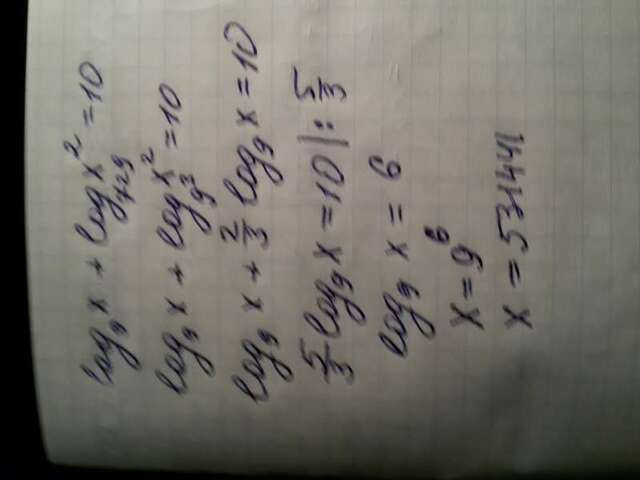 log₉ x + log₇₂₉ x² = 10
log₉ x + log₉³ x² = 10
log₉ x + 2/3 log₉ x = 10
5/3 log₉ x = 10 | : 5/3
log₉ x = 6
x = 9⁶
x = 531441